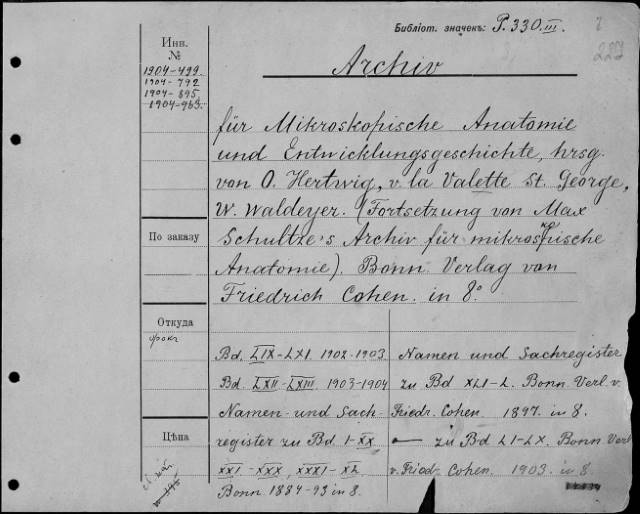 Библіот. значекъ: P. 330. III.
Инв.
№
1904-499.
1904-792
1904-895
1904-963.
Archiv
für Mikroskopische Anatomie
und Entwicklungsgeschichte, hrsg.
von O. Hertwig, v. la Valette St. George,
W. Waldeyer. (Fortsetzung von Max
По заказу
Schultze's Archiv für mikroskopische
Anatomie). Bonn. Verlag von
Friedrich Cohen. in 8°
Откуда
Bd. LIX-LXI. 1902-1903.
Bd. LXII-LXIII. 1903-1904
Namen- und Sach-
register zu Bd. I-XX
XXI-XXX, XXXI-XL
Bonn 1884-93 in 8.
Namen und Sachregister
zu Bd XLI-L. Bonn. Verl. v.
Friedr. Cohen. 1897. in 8.
— zu Bd LI-LX. Bonn Verl
v. Friedr. Cohen. 1903. in 8.
Цѣна